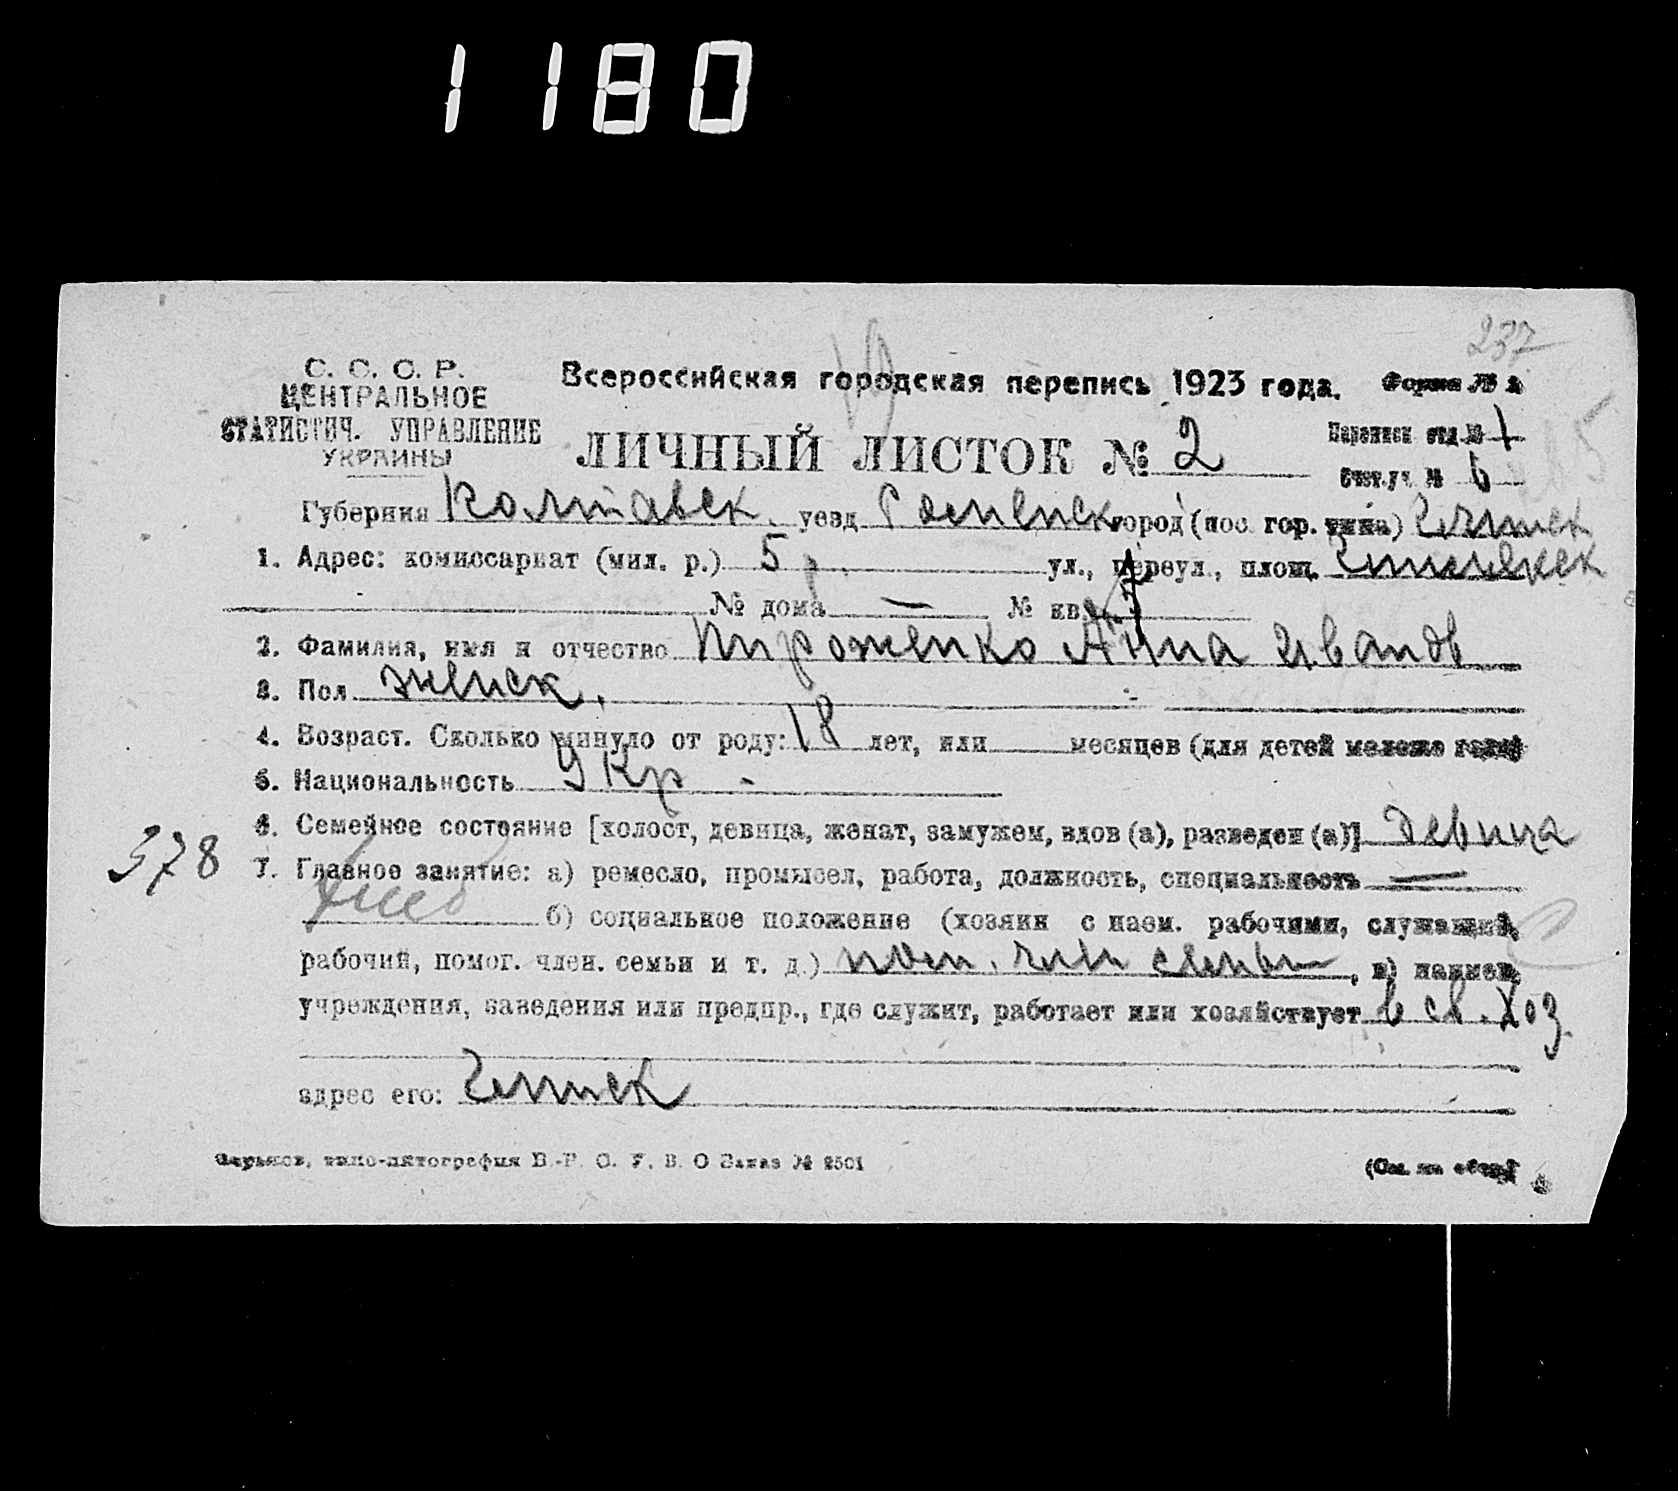 1180
237
С. С. С. Р.
ЦЕНТРАЛЬНОЕ
СТАТИСТИЧ. УПРАВЛЕНИЕ
УКРАИНЫ
Всероссийская городская перепись 1923 года. Форма № 2
ЛИЧНЫЙ ЛИСТОК № 2
Переписн отд. № 1
Счет. уч. № 6
Губерния Полтавск. уезд Роменск город (пос гор. типа)
1. Адрес: комиссариат (мил. р.) 5 р. ул., переул., площ.
№ дома — № кв.
2. Фамилия, имя и отчество Пироженко Анна Иванов
3. Пол женск.
4. Возраст. Сколько минуло от роду: 18 лет, или месяцев (для детей моложе года)
5. Национальность Укр -
6. Семейное состояние [холост, девица, женат, замужем, вдов (а), разведен (а)] Девица
378
7. Главное занятие: а) ремесло, промысел, работа, должность, специальность —
б) социальное положение (хозяин с наем. рабочими, служащий,
рабочий, помог. член. семьи и т. д.) пом. член семьи, в) наимен.
учреждения, заведения или предпр., где служит, работает или хозяйствует в св. хоз.
адрес его:
Харьков, типо-литография В.-Р. С. У. В. О Заказ № 2501
(См. на обор.)